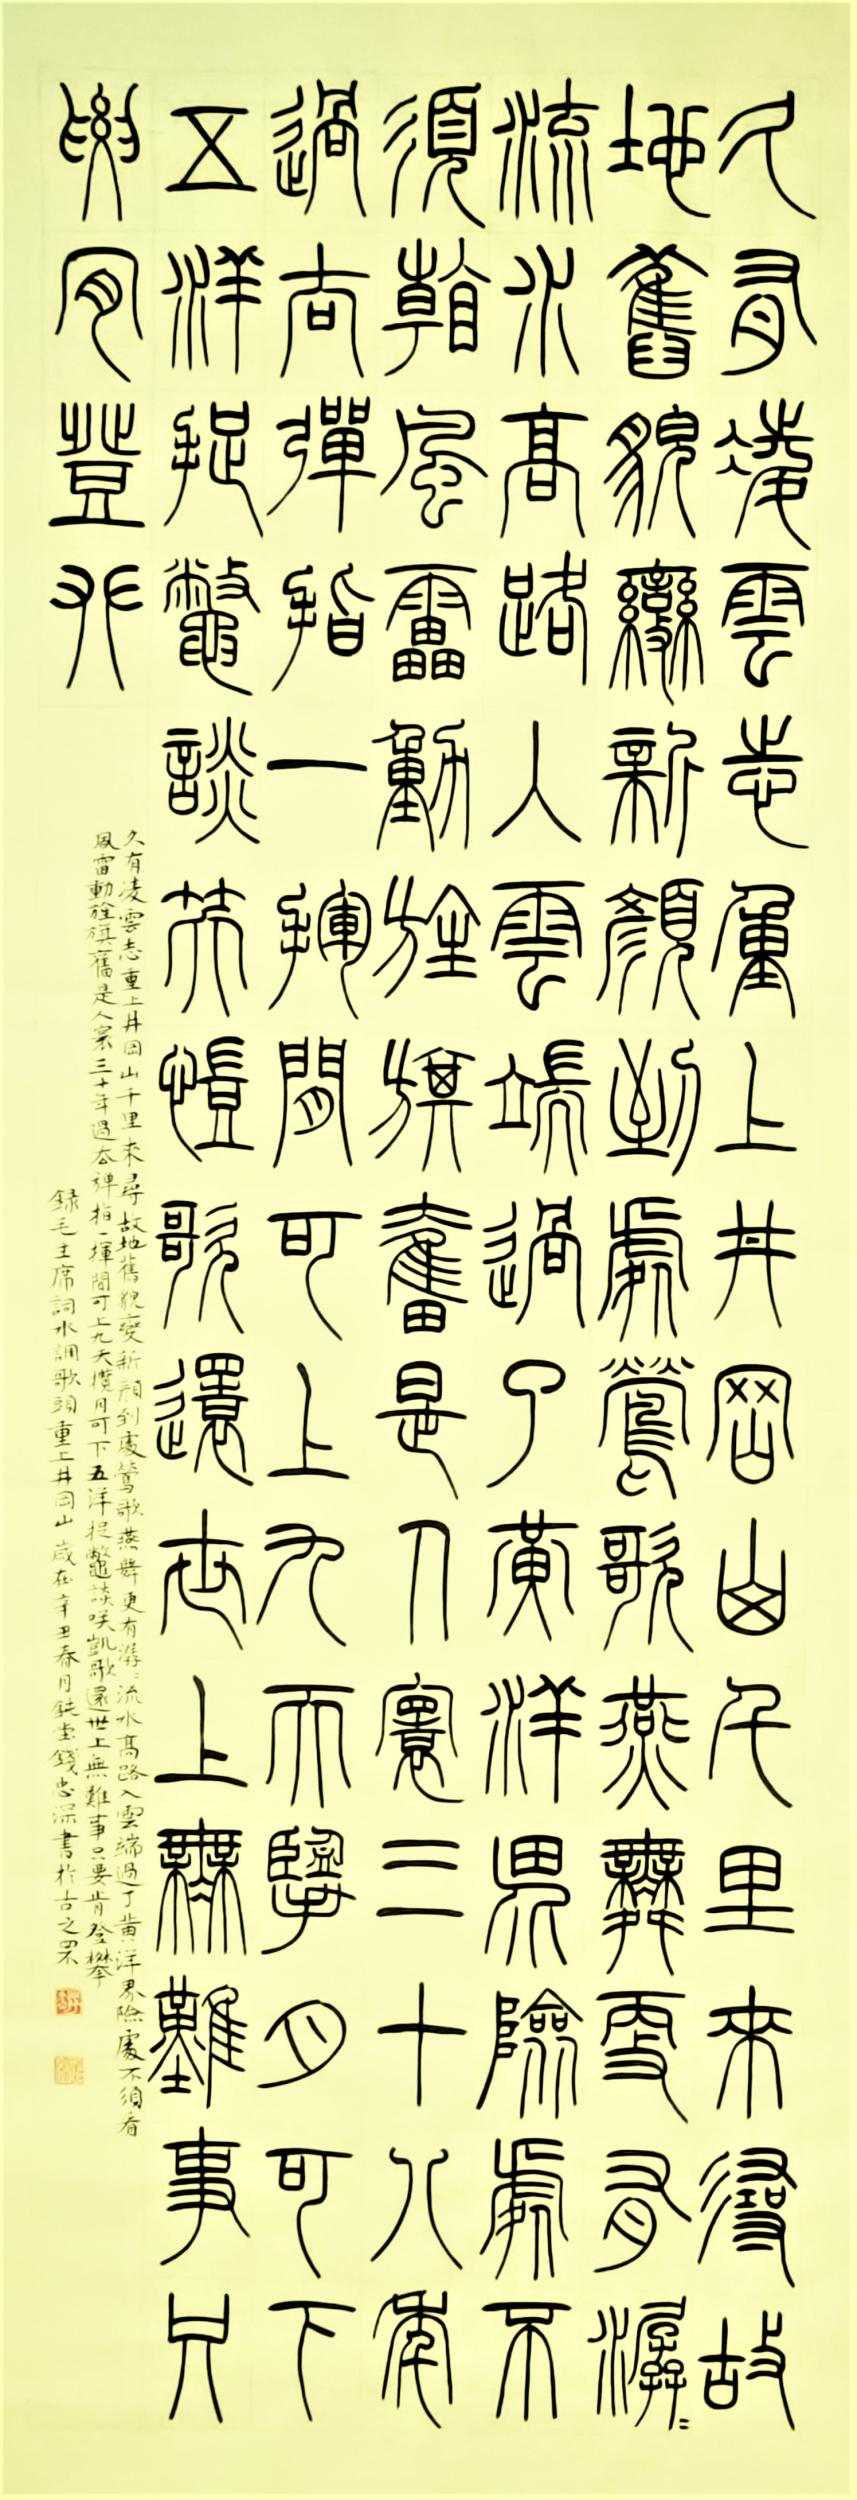 久有凌雲志重上井岡山千里來尋故
地舊貌變新顏到處鶯歌燕舞更有潺〻
流水高路入雲端過了黃洋界險處不
須看風雷動旌旗奮是人寰三十八年
過去彈指一揮間可上九天攬月可下
五洋捉鱉談笑愷歌還世上無難事只
要肯登攀
久有凌雲志重上井岡山千里來尋故地舊貌變新顏到處鶯歌燕舞更有潺〻流水高路入雲端過了黃洋界險處不須看
風雷動旌旗奮是人寰三十年過去彈指一揮間可上九天攬月可下五洋捉鱉談笑凱歌還世上無難事只要肯登攀
錄毛主席詞水調歌頭重上井岡山 歲在辛丑春月鈍堂錢忠深書於古之罘